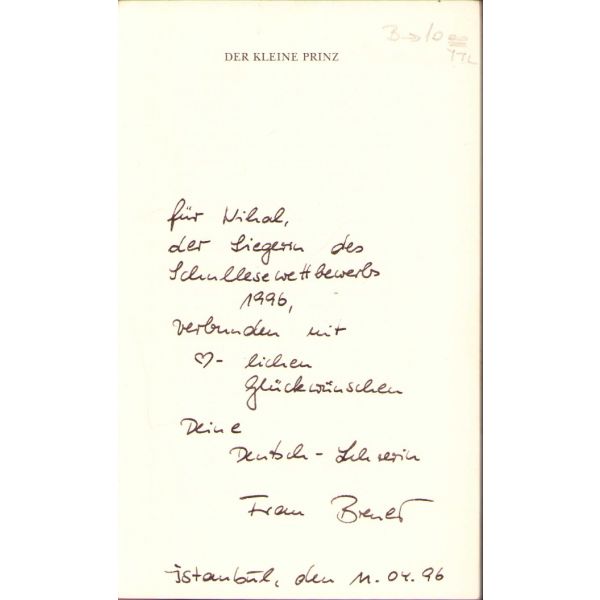 B→10 00
YTL
DER KLEINE PRINZ
für Nihal,
der Siegerin des
Schullesewettbewerbs
1996,
verbunden mit
♡- lichen
Glückwünschen
Deine
Deutsch - Lehrerin
Frau
İstanbul, den 11.04.96